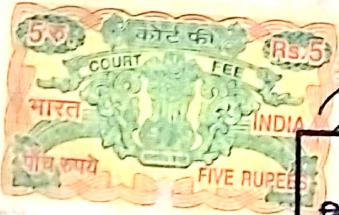 5 रु. कोर्ट फी Rs.5
COURT FEE
भारत INDIA
पाँच रुपये FIVE RUPEES